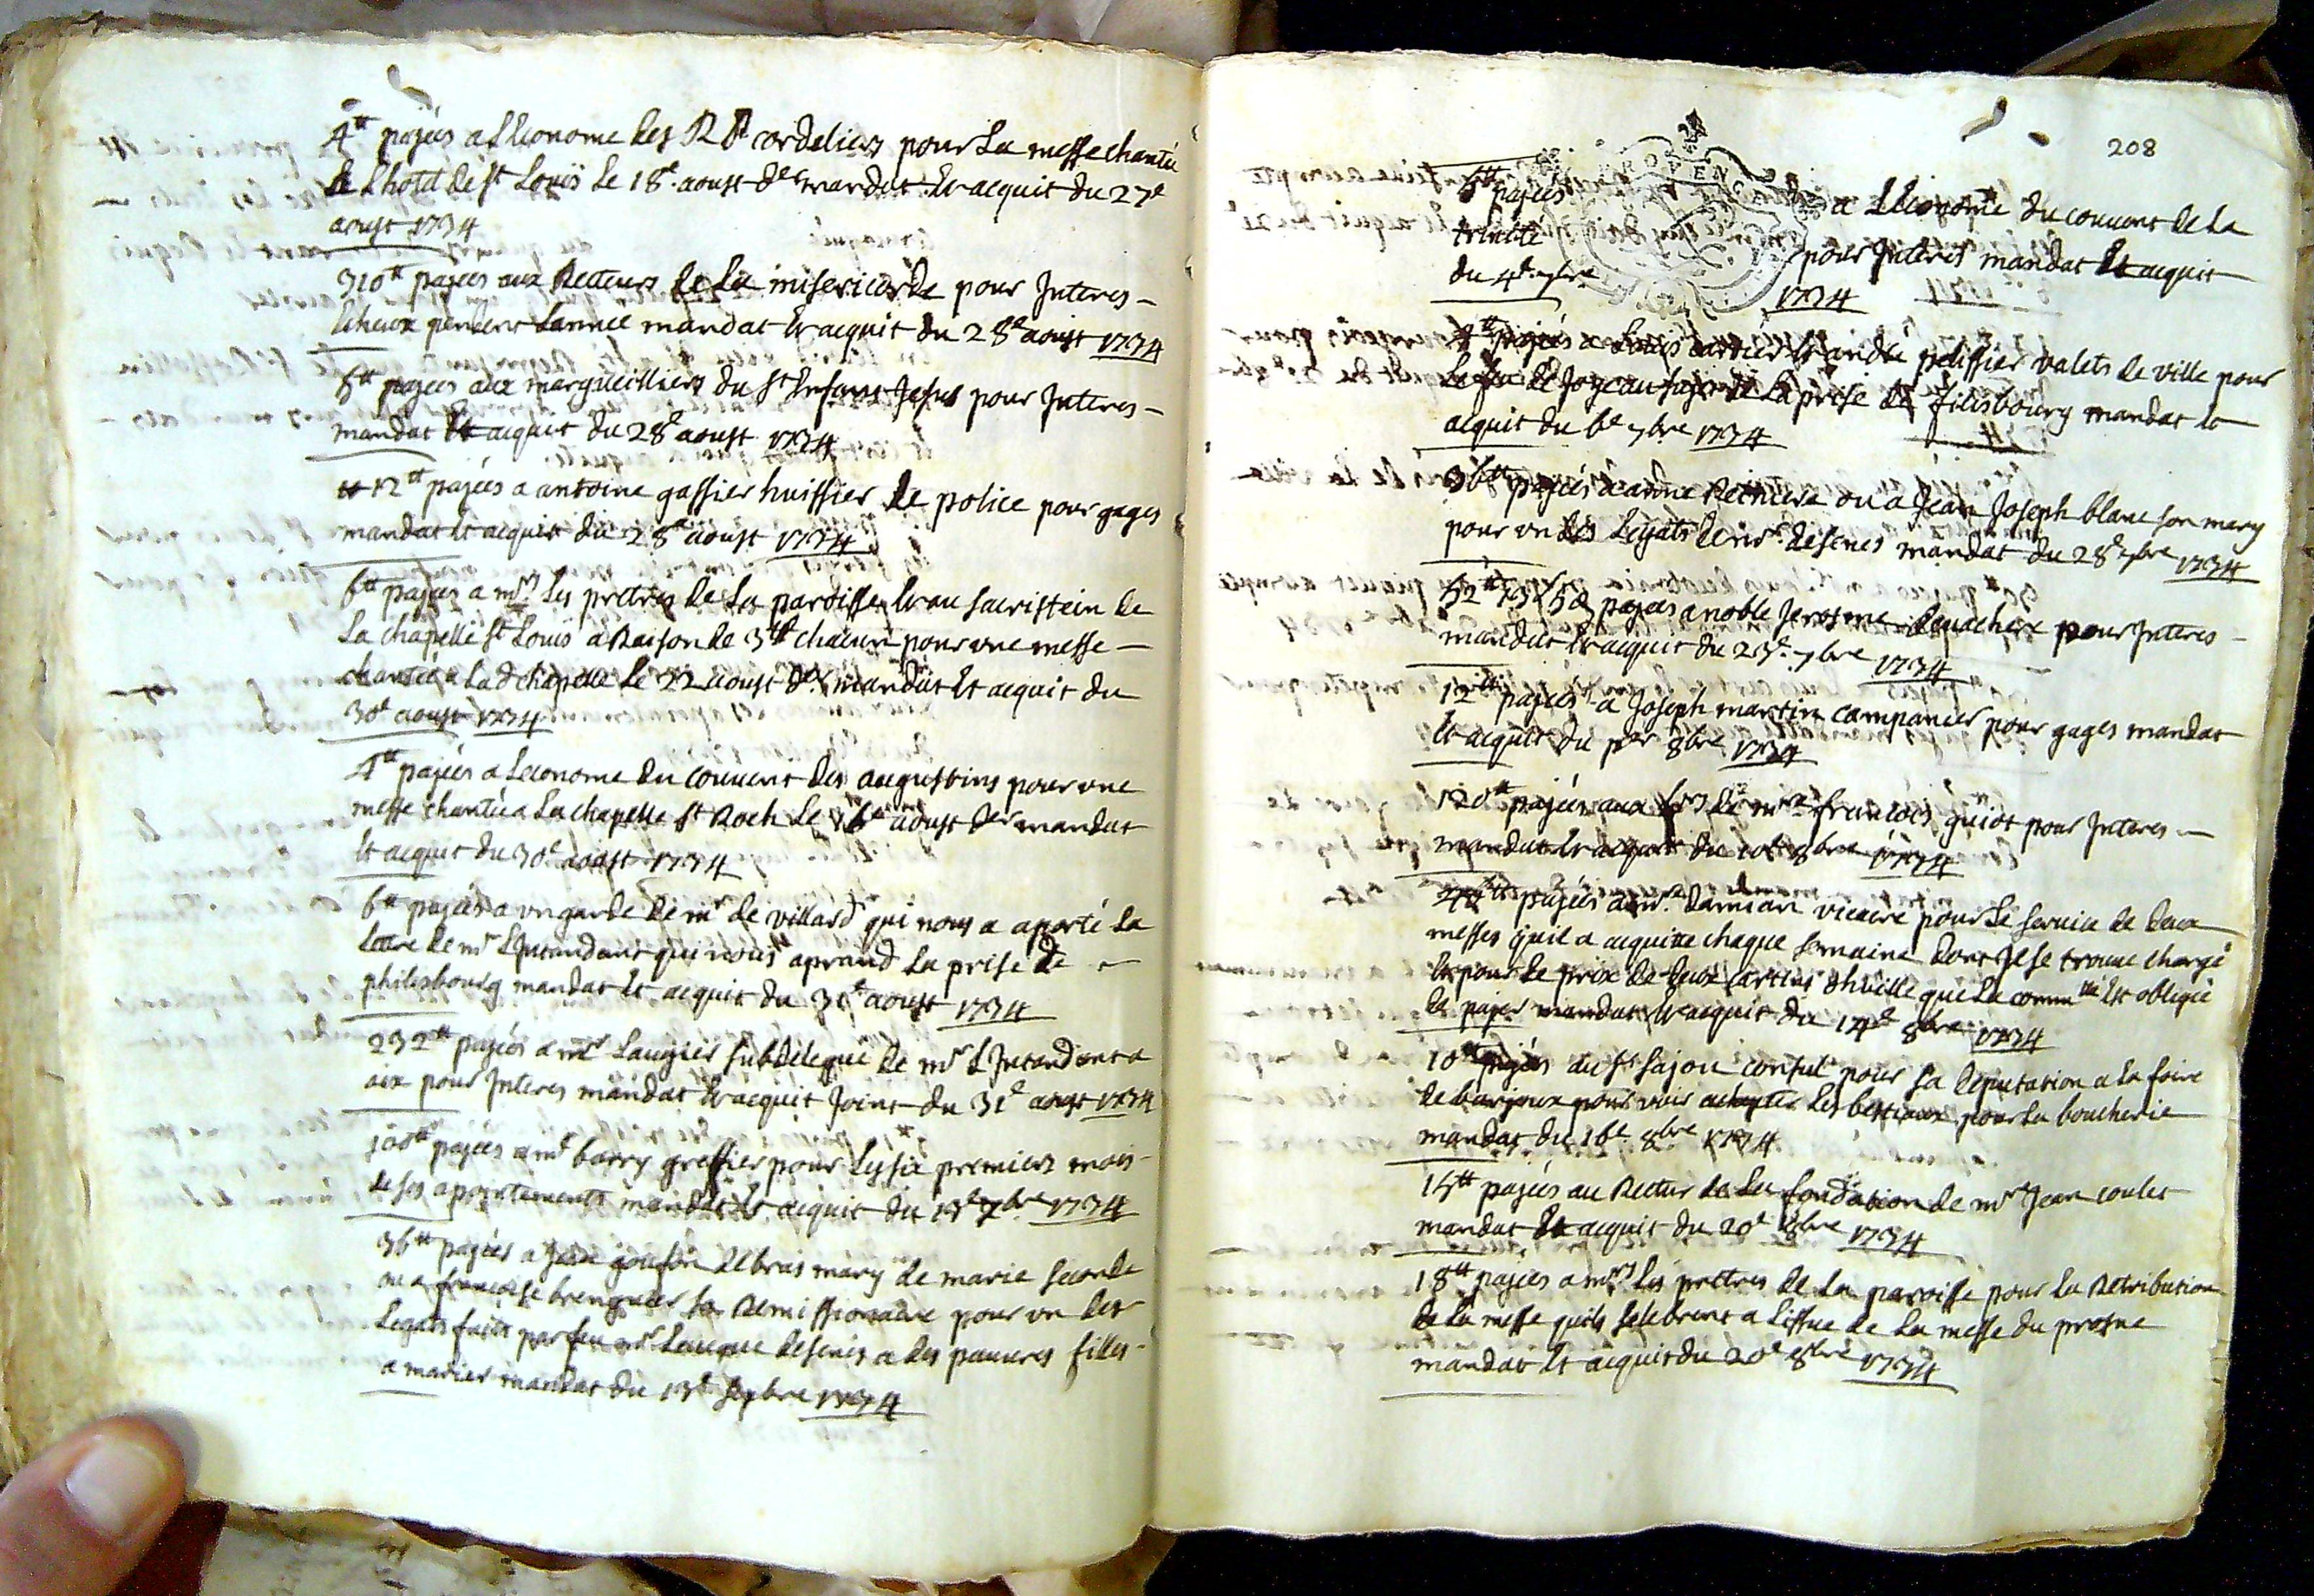 4tt payées a Leconome des RR Pe cordeliers pour La messe chantée
de Lhotel de st Louis le 18e aoust der mandat et acquit du 27e
aoust 1734
310tt payées aux Recteurs de La misericorde pour Interes
Echeux pendent Lannee mandat et acquit du 28e aoust 1734
5tt payées aux margueilliers du st Enfant Jesus pour Interes
mandat et acquit du 28e aoust 1734
12tt payées a antoine gassier huissier de police pour gages
mandat et acquit du 28e aoust 1734
6tt payées a mrs Les prettres de La paroisse et au sacristein de
La chapelle st Louis a Raison de 3tt chacun pour une messe
chantée a Lad chapelle le 22 aoust der mandat et acquit du
30e aoust 1734
4tt payées a Leconome du couvent des augustins pour une
messe chantée a La chapelle st Roch Le 16e aoust der mandat
et acquit du 30e aoust 1734
6tt payées a un garde de mr de villard qui nous a aporté La
Lettre de mr Lintandant qui nous aprand La prise de
philisbourg mandat et acquit du 31e aoust 1734
232tt payées a mr Laugier subdelegué de mr LIntandant a
aix pour Interes mandat et acquit Joint du 31e aoust 1734
100tt payées a mr barry greffier pour Les six premiers mois
de ses apointements mandat et acquit du 13e 7bre 1734
36tt payées a Jean debras mary de marie seconde
ou a francoise brenguier sa Remissionaire pour un des
Legats faits par feu mr Leveque desenes a des pauvres filles
a marier mandat du 13e Sepbre 1734
208
5tt payées a LEconome du couvent de La
trinité pour Interes mandat et acquit
du 4e 7bre 1734
4tt payées a Louis cartier et andré pelissier valets de ville pour
Le feu de Joye au sujet de La prise de filisbourg mandat et
acquit du 6e 7bre 1734
36tt payées a anne ou a Jean Joseph blanc son mary
pour un des Legats de mr desenes mandat du 28e 7bre 1734
52tt 13s 5d payées a noble Jerosme pour Interes
mandat et acquit du 29e 7bre 1734
12tt payées a Joseph martin campanier pour gages mandat
et acquit du per 8bre 1734
120tt payées aux hrs de mre francois guiot pour Interes
mandat et acquit du 10e 8bre 1734
payées a mre Damian vicaire pour Le service de deux
messes quil a acquitte chaque semaine dont Il se trouve chargé
et pour le prix de deux cartins dhuille que La commté Est obligée
de payer mandat et acquit du 14e 8bre 1734
10tt payées au sr sajou consul pour sa deputation a la foire
de barjoux pour voir achepter Les bestiaux pour La boucherie
mandat du 16e 8bre 1734
15tt payées au Rectur de La fondation de mre Jean coulet
mandat et acquit du 20e 8bre 1734
18tt payées a mrs Les prettres de La paroisse pour La Retribution
de La messe quils selebrent a Lissue de La messe du prosne
mandat et acquit du 20e 8bre 1734